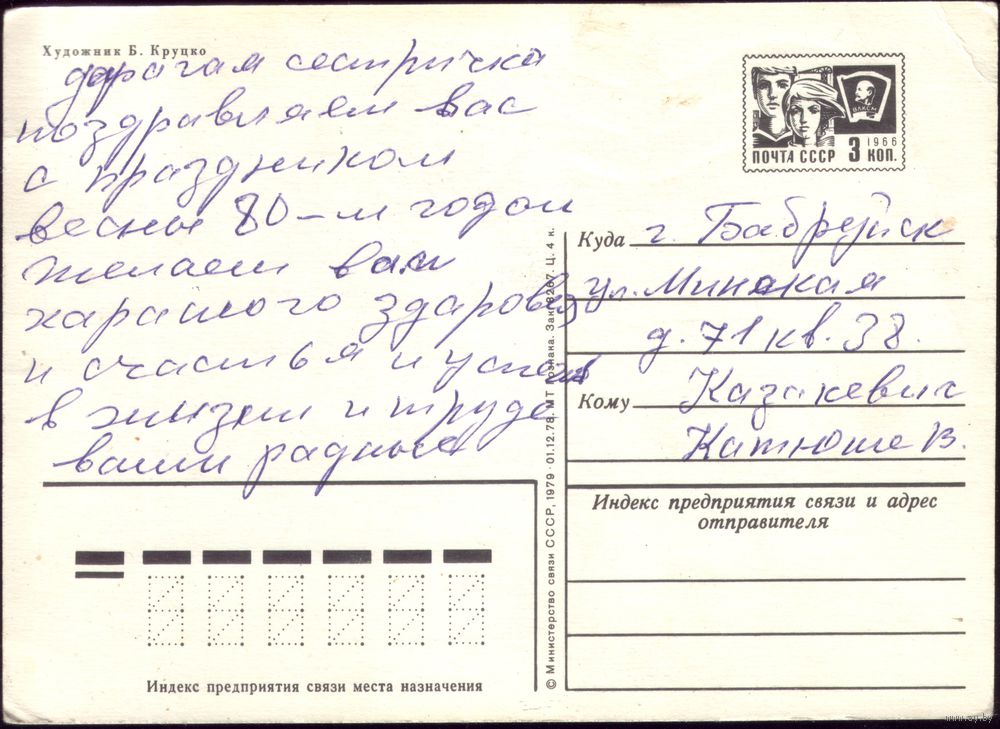 Художник Б. Круцко
дарагая сестричка
поздравляем вас
с праздником
весны 80-м годом
желаем вам
харашого здаровья
и счастья и успехов
в жизни и труде
ваши радные
ВЛКСМ
1966
ПОЧТА СССР 3 КОП.
Куда г. Бабруйск
ул. Минская
д. 71 кв. 38.
Кому Казакевич
Катюше В.
Индекс предприятия связи и адрес
отправителя
Индекс предприятия связи места назначения
© Министерство связи СССР, 1979 · 01.12.78. МТ Гознака. Зак. 8267. Ц. 4 к.